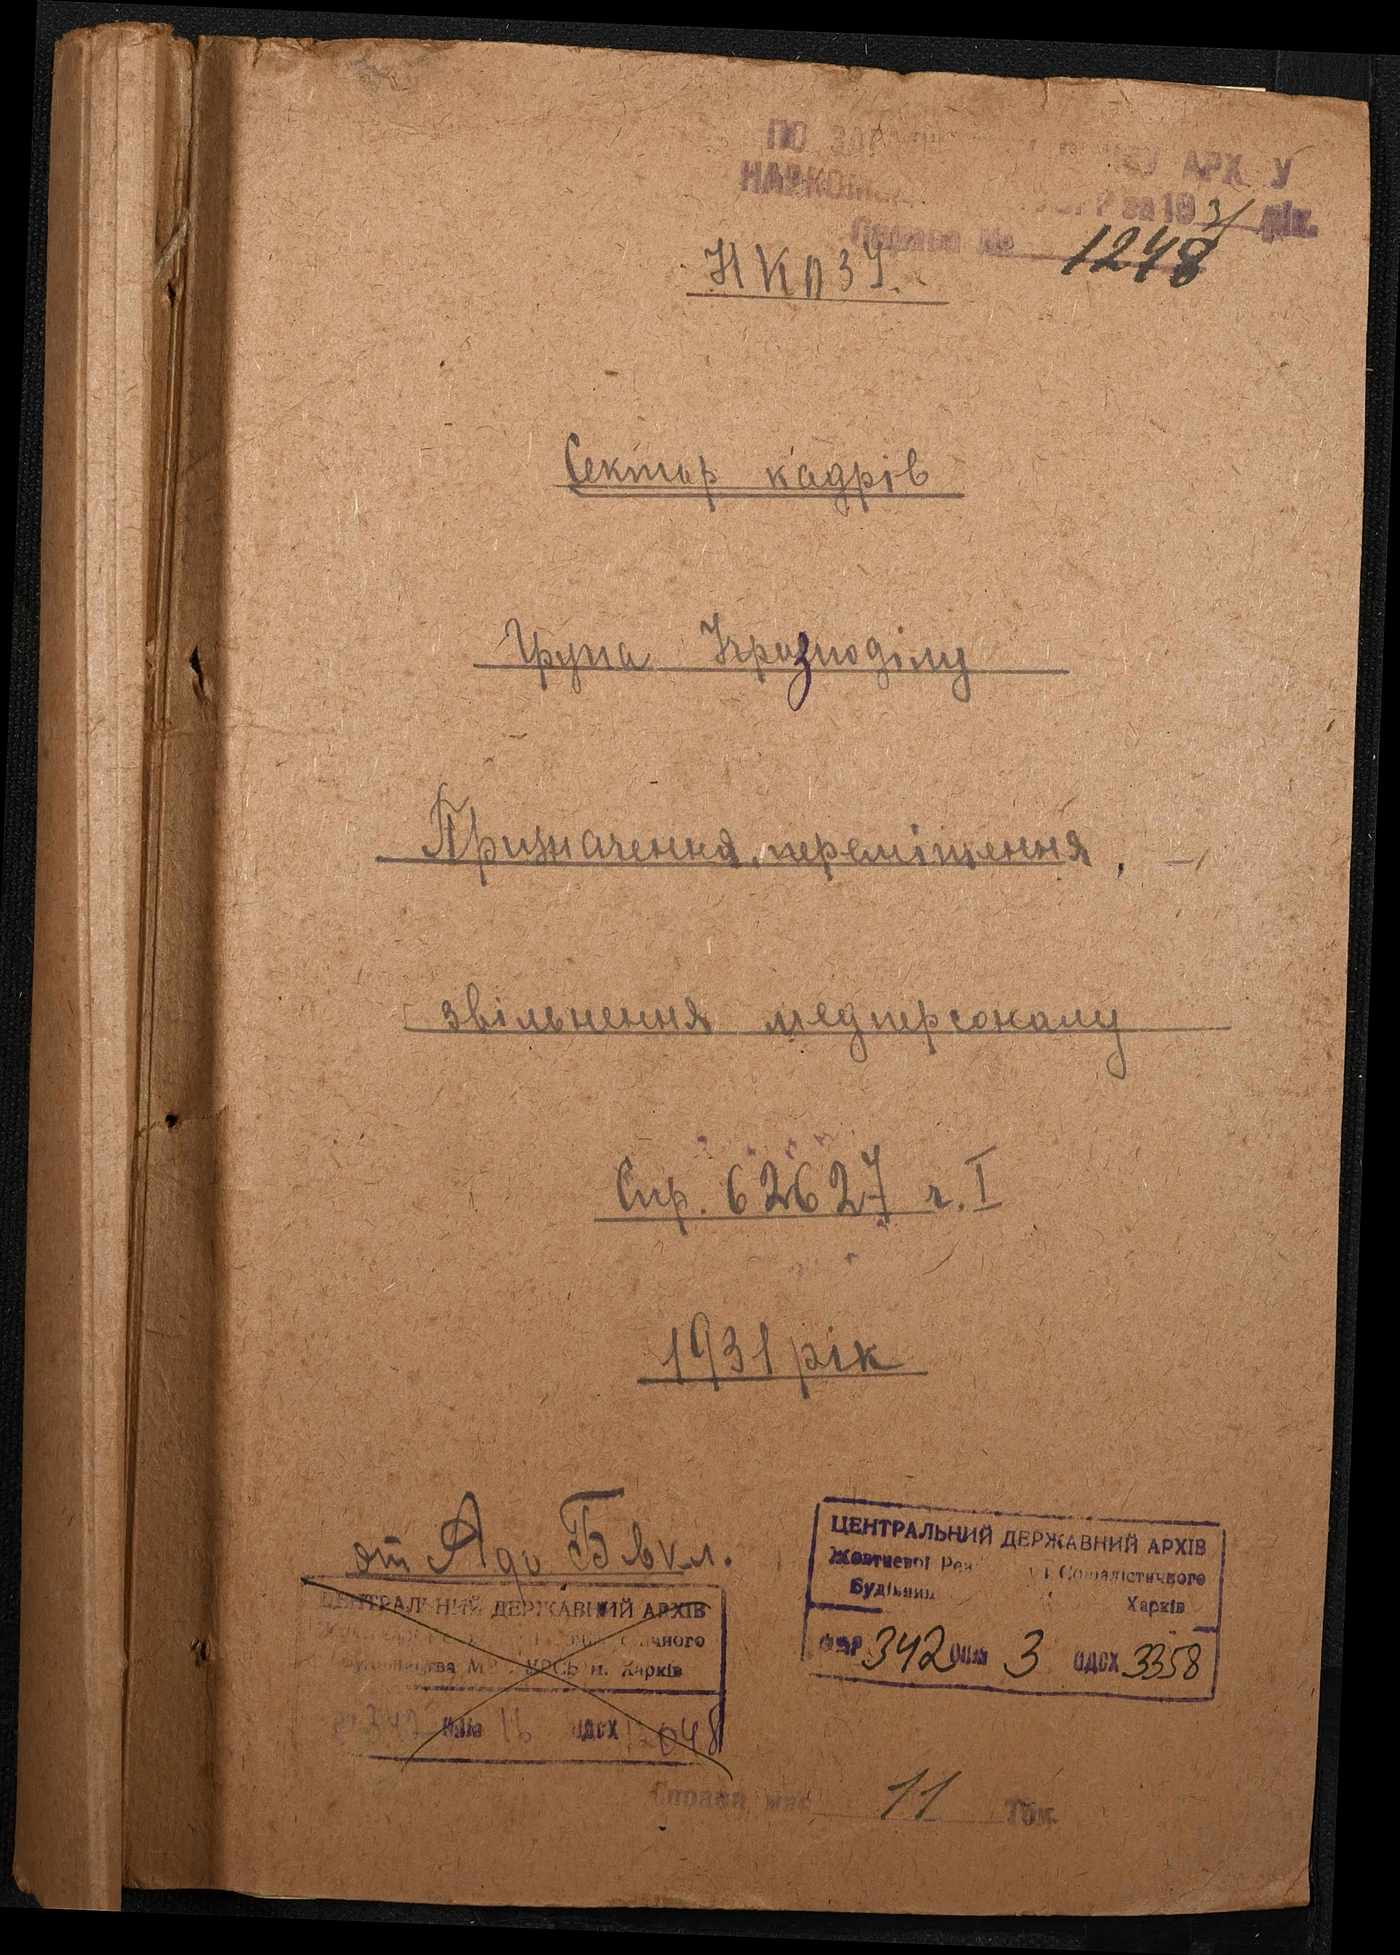 ПО АРХ У
за 193/ рік.
Справа № 1248
НКОЗУ.
Сектор кадрів
Група Укрозподілу
Призначення, переміщення,
звільнення медперсоналу
Спр. 62627 ч. I
1931 рік
от А до Б вкл.
ЦЕНТРАЛЬНИЙ ДЕРЖАВНИЙ АРХІВ
ичного
м. Харків
342 Опис 16 ОДСХ 048
ЦЕНТРАЛЬНИЙ ДЕРЖАВНИЙ АРХІВ
Жовтневої Рев і Соціалістичного
Будівни Харків
ФОНР 342 Опис 3 ОДСХ 3358
Справа має 11 Том.